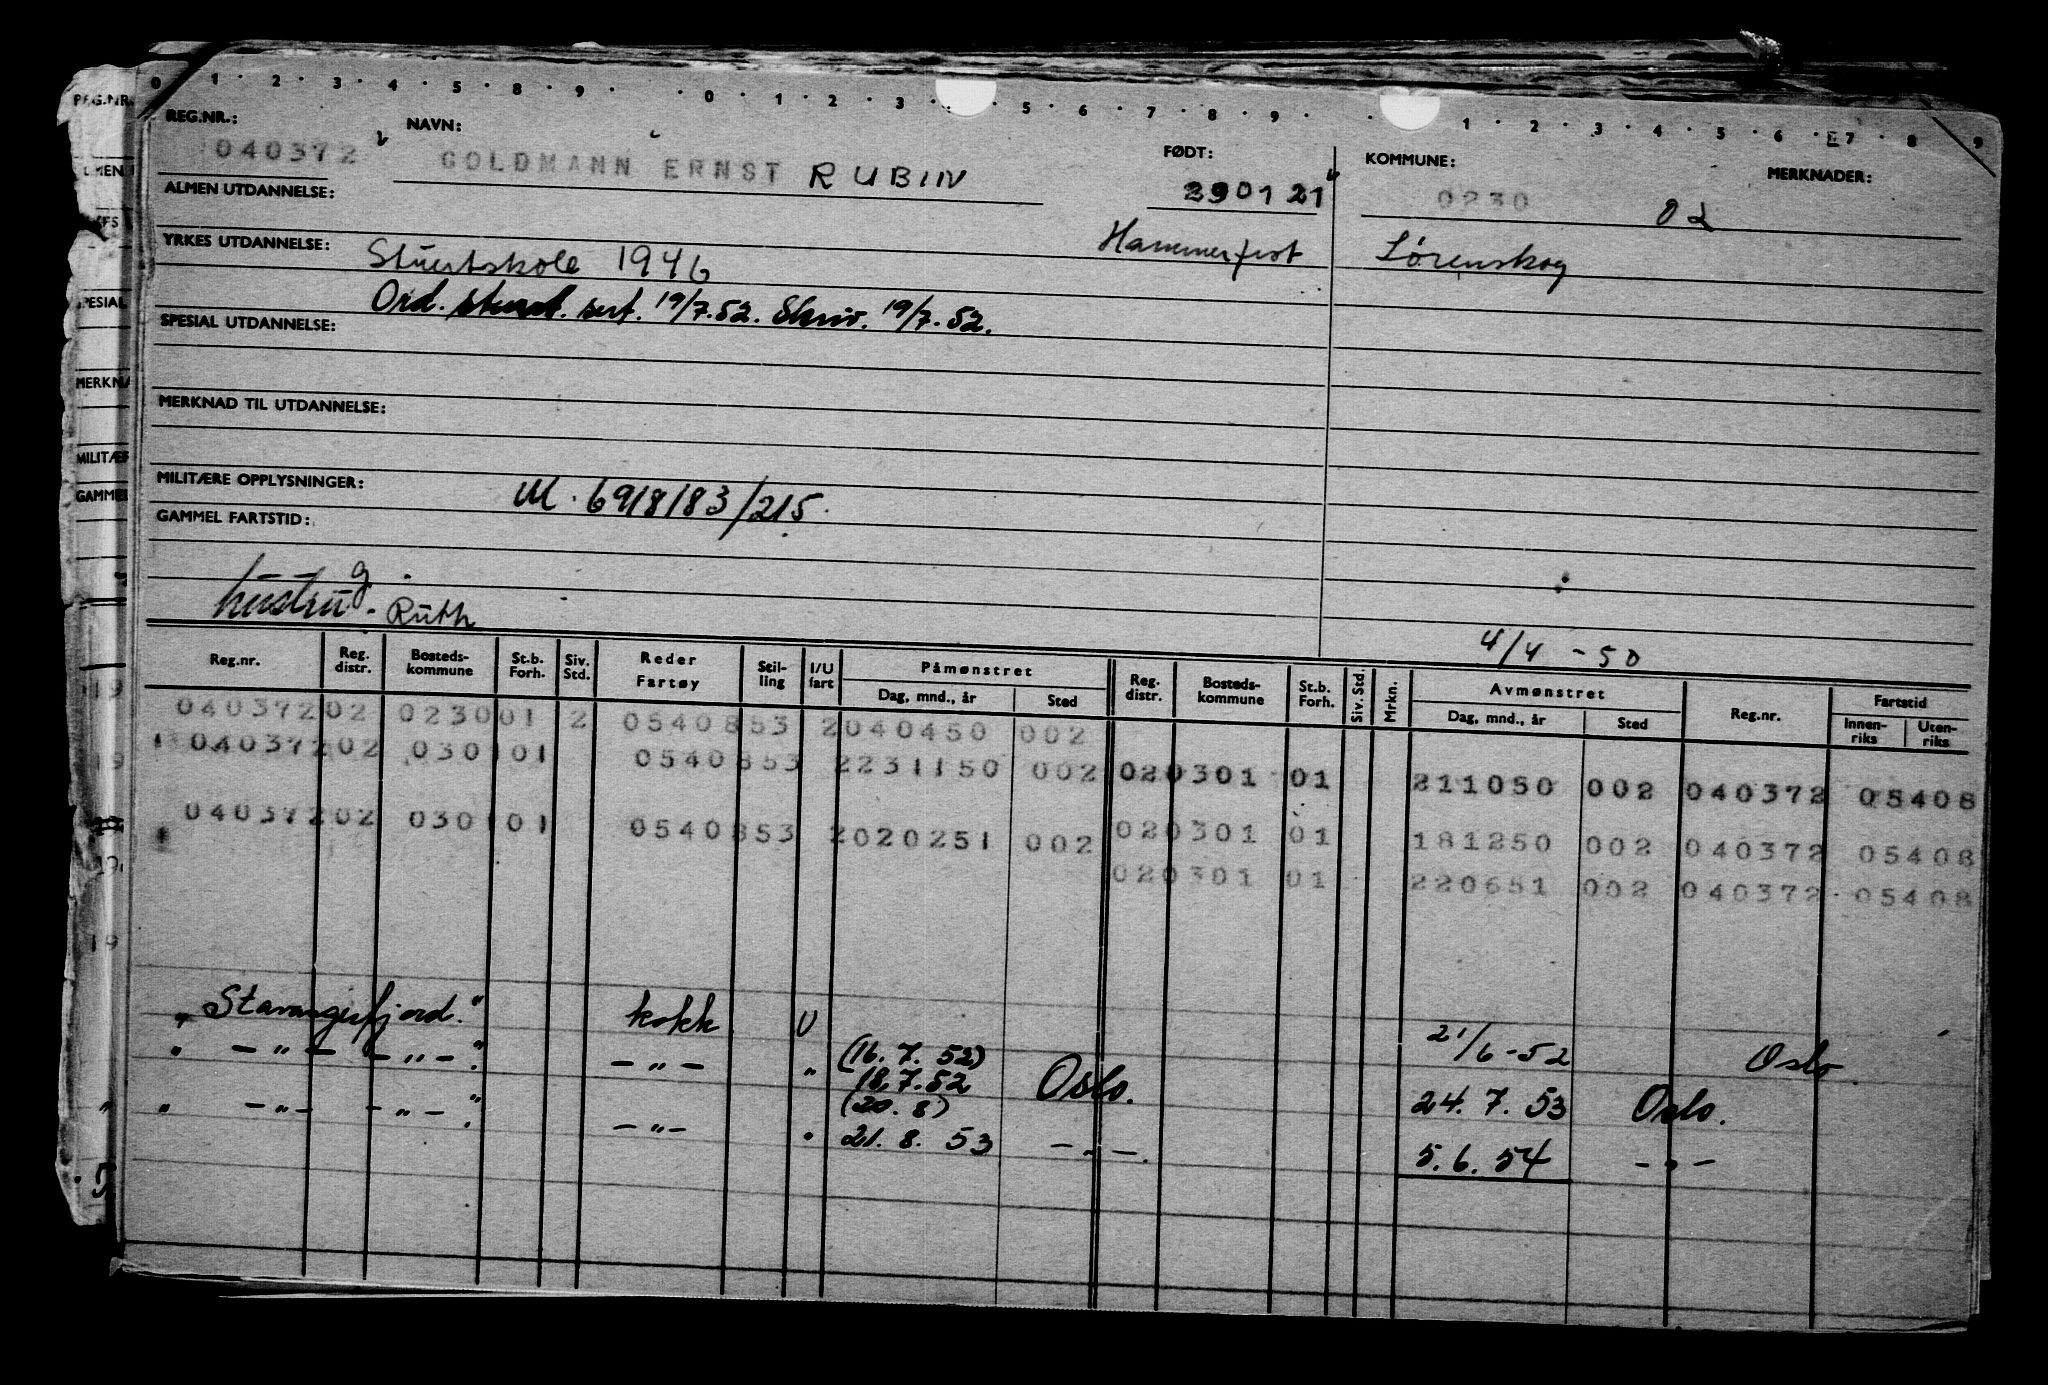 0 · 1 · 2 · 3 · 4 · 5 · 8 · 9 · · 0 · 1 · 2 · 3 · · 5 · 6 · 7 · 8 · 9 · · 1 · 2 · 3 · 4 · 5 · 6 · 7 · 8 · 9
REG.NR.: NAVN: FØDT: KOMMUNE: MERKNADER:
040372 GOLDMANN ERNST RUBIN 290121 0230 02
ALMEN UTDANNELSE:
Hammerfest Lørenskog
YRKES UTDANNELSE: Stuertskole 1946
Ord. stuert. sert. 19/7.52. Skriv. 19/7.52.
SPESIAL UTDANNELSE:
MERKNAD TIL UTDANNELSE:
MILITÆRE OPPLYSNINGER: M. 6918183/215.
GAMMEL FARTSTID:
hustru g. Ruth
4/4 - 50
Reg.nr. Reg. distr. Bosteds-kommune St.b. Forh. Siv. Std. Reder Fartøy Stil-ling I/U fart Påmønstret Dag, mnd., år Sted Reg. distr. Bosteds-kommune St.b. Forh. Siv. Std. Mrkn. Avmønstret Dag, mnd., år Sted Reg.nr. Fartstid Innen-riks Uten-riks
040372 02 0230 01 2 0540853 2040450 002
040372 02 0301 01 0540853 2231150 002 020301 01 211050 002 040372 05408
040372 02 0301 01 0540853 2020251 002 020301 01 181250 002 040372 05408
020301 01 220651 002 040372 05408
„Stavangerfjord." kokk U 21/6-52 Oslo.
" - " - - " - " - " - " (16.7.52) 18.7.52 Oslo. 24.7.53 Oslo.
" - " - - " - " - " - " (20.8) 21.8.53 - " - . 5.6.54 - " -